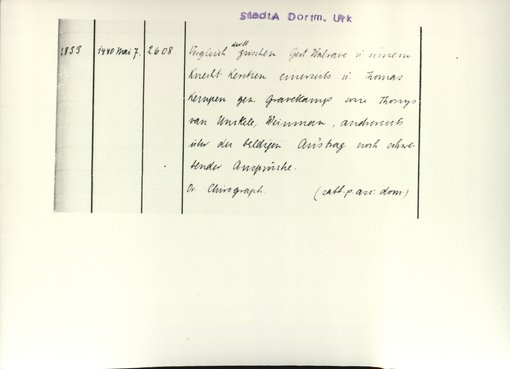 StadtA Dortm. Urk
2833 1440 Mai 7. 2608 Vergleich zwischen Gert Walrave u. seinem
Knecht Kerstien einerseits u. Thomas
Kempen gen. Gravekamp sowie Thonys
van Unkele, Weinman, andrerseits
über den beldigen Austrag noch schwe-
bender Ansprüche.
Or. Chirograph. (sabb. p. asc. dom)